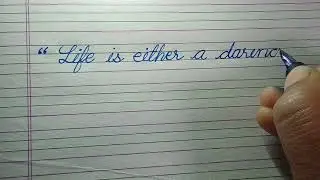 “ Life is either a darinc